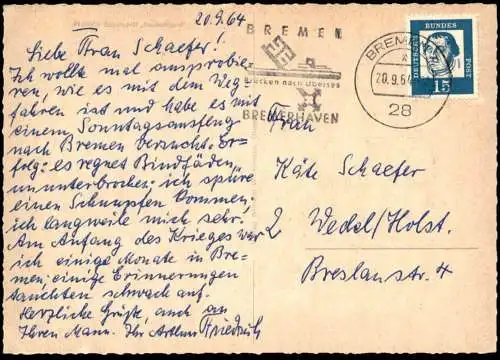 20.9.64
Liebe Frau Schaefer!
Ich wollte mal ausprobie-
ren, wie es mit dem Weg
fahren ist und habe es mit
einem Sonntagsausflug
nach Bremen versucht. Er-
folg: es regnet Bindfäden,
ununterbrochen; ich spüre
einen Schnupfen kommen;
ich langweile mich sehr.
Am Anfang des Krieges war
ich einige Monate in Bre-
men; einige Erinnerungen
tauchten schwach auf.
Herzliche Grüße, auch an
Ihren Mann. Ihr Arthur Friedrich
BREMEN
Brücken nach Übersee
BREMERHAVEN
BREMEN
20.9.64
28
DEUTSCHE
BUNDES
POST
15
Frau
Käte Schaefer
2 Wedel/Holst.
Breslaustr. 4